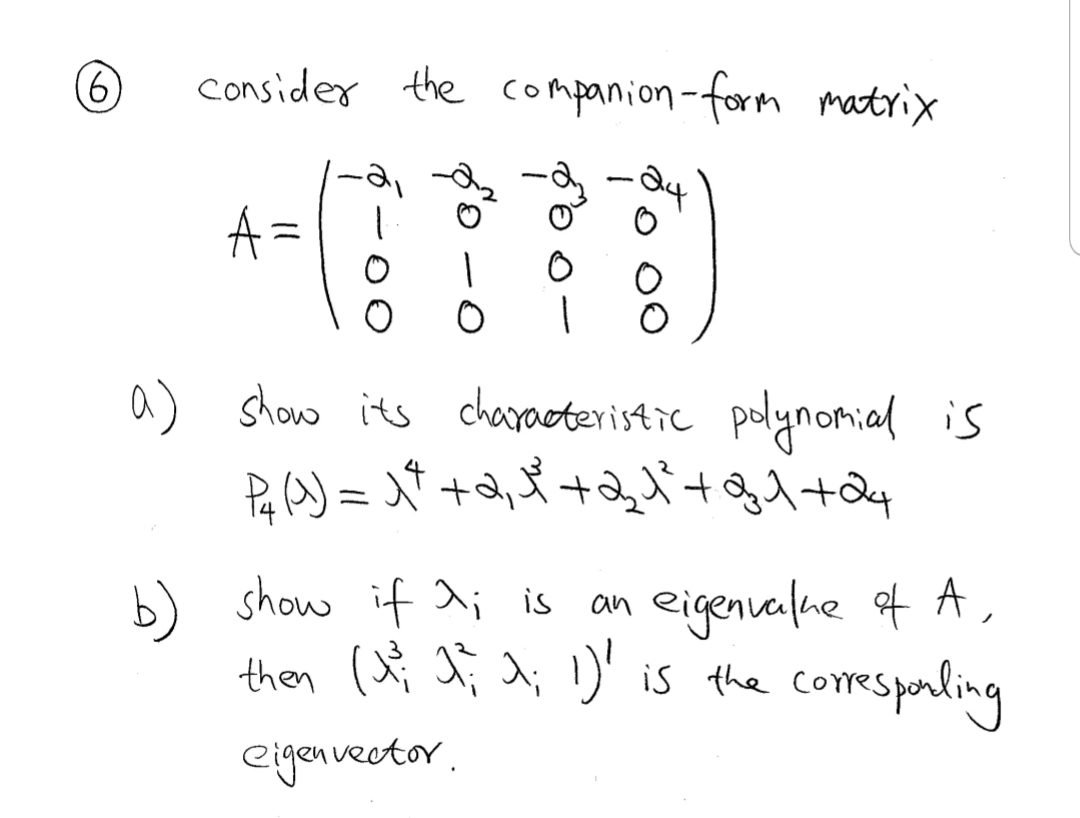 ⑥ consider the companion-form matrix
A = ( -α₁ -α₂ -α₃ -α₄
1 0 0 0
0 1 0 0
0 0 1 0 )
a) show its characteristic polynomial is
P₄(λ) = λ⁴ + α₁λ³ + α₂λ² + α₃λ + α₄
b) show if λᵢ is an eigenvalue of A,
then (λᵢ³ λᵢ² λᵢ 1)' is the corresponding
eigenvector.